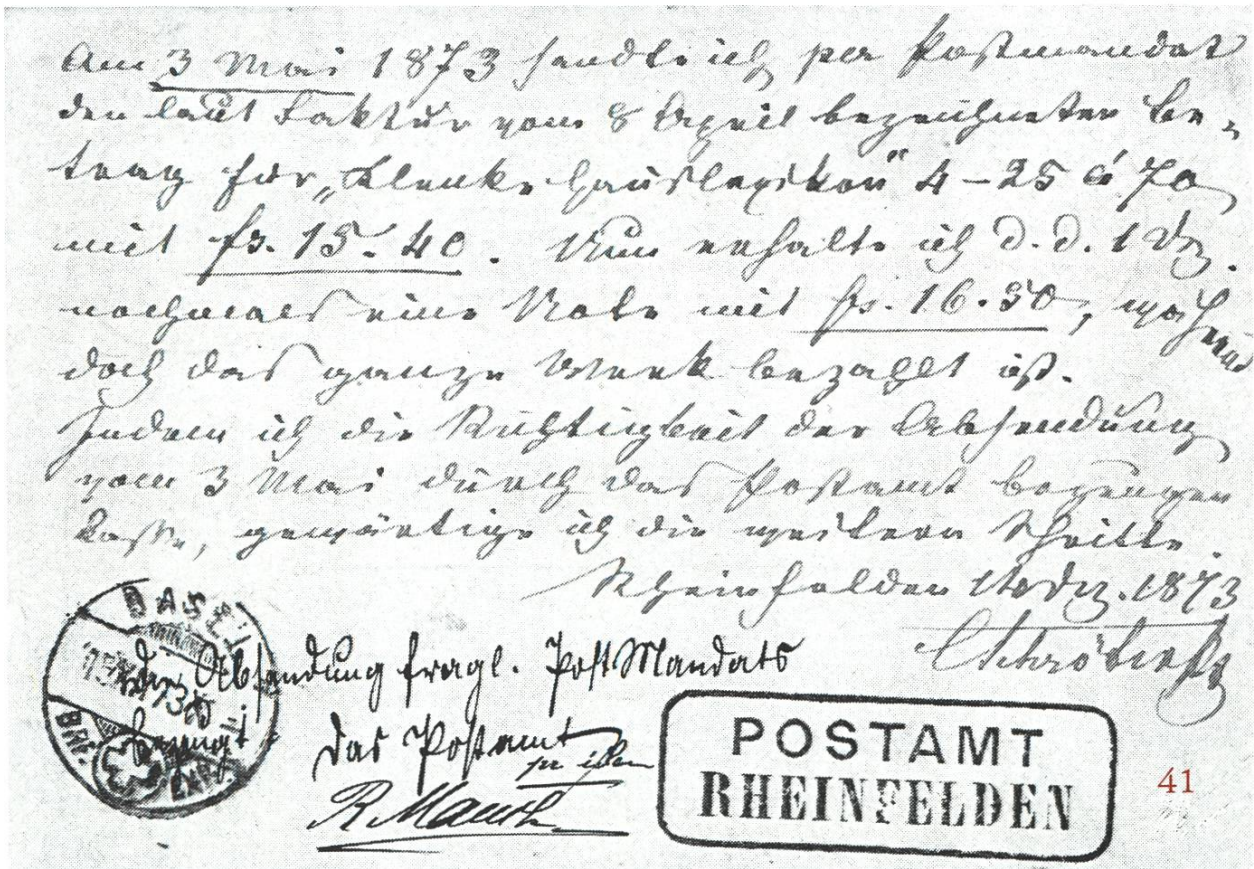 Am 3 Mai 1873 sandte ich per Postmandat
den laut Faktur vom 8 April bezeichneten Be-
trag für „Klenke Hauslexikon" 4 – 25 à 70
mit fr. 15. 40. Nun erhalte ich d. d. 1 Dz.
nochmals eine Note mit fr. 16. 50,
doch das ganze Werk bezahlt ist.
Indem ich die Richtigkeit der Absendung
vom 3 Mai durch das Postamt bezeugen
lasse, gewärtige ich die weitern Schritte.
Rheinfelden Dez. 1873
BASEL
Absendung fragl. Post Mandats
bezeugt:
Das Postamt
R. Mauch
POSTAMT
RHEINFELDEN
41